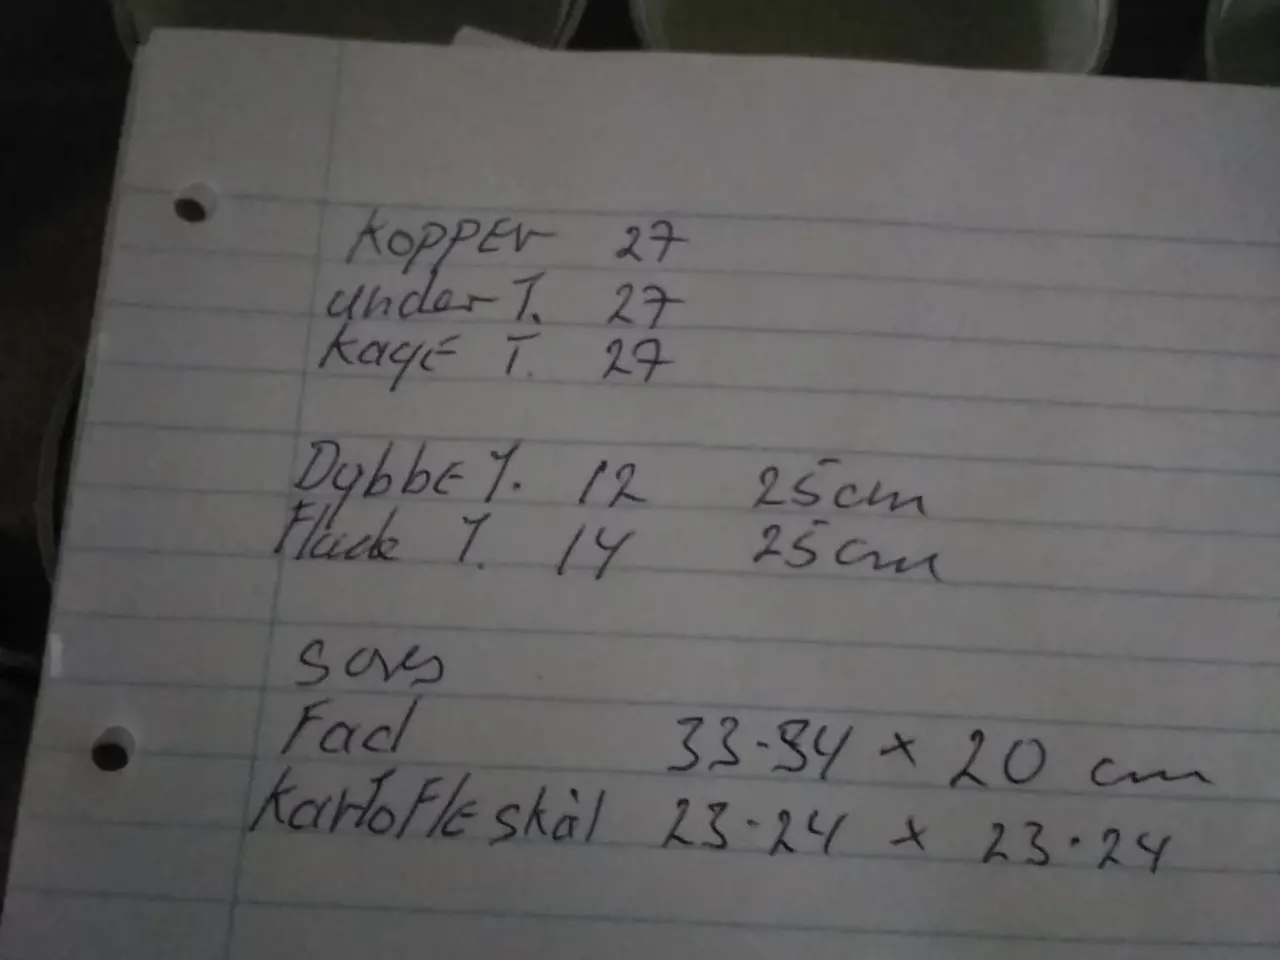 KOPPEr 27
under T. 27
kagE T. 27
DybbE T. 12 25 cm
Flade T. 14 25 cm
Sovs
Fad 33-34 x 20 cm
KartoFlE skål 23-24 x 23-24